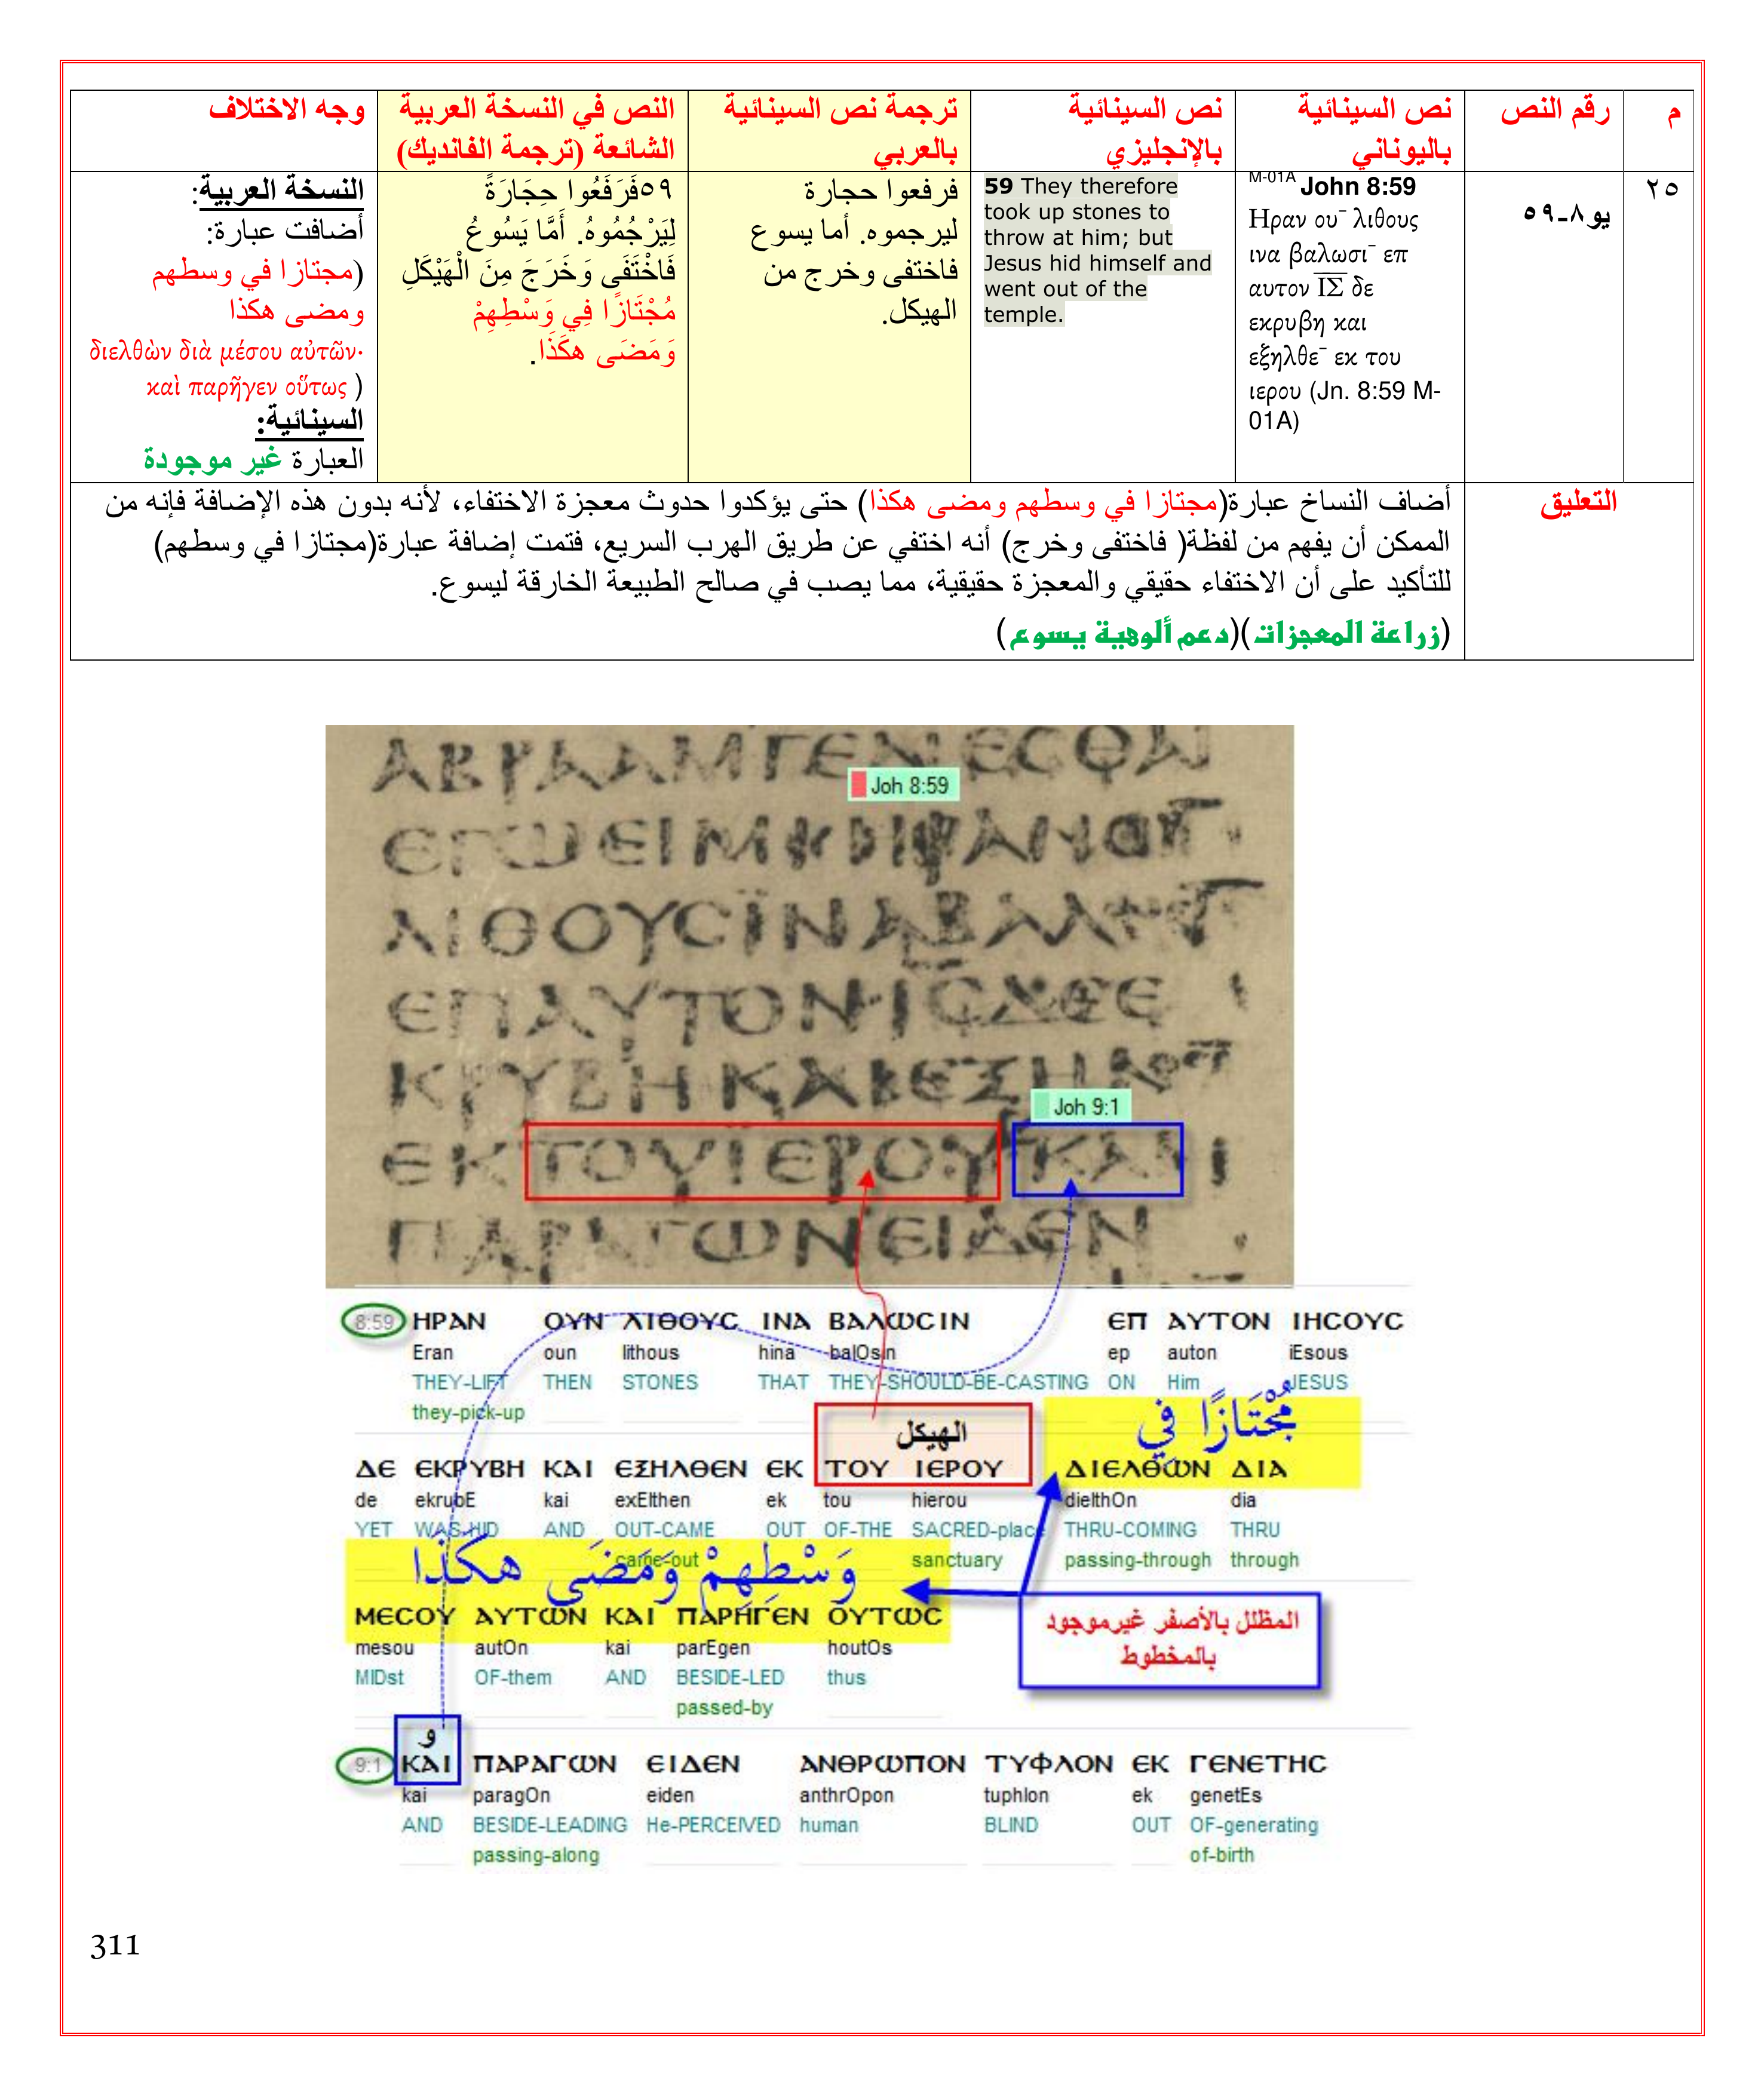 م
رقم النص
نص السينائية
باليوناني
نص السينائية
بالإنجليزي
ترجمة نص السينائية
بالعربي
النص في النسخة العربية
الشائعة (ترجمة الفانديك)
وجه الاختلاف
٢٥
يو٨-٥٩
M-01A John 8:59
Ηραν ου‾ λιθους
ινα βαλωσι‾ επ
αυτον ΙΣ δε
εκρυβη και
εξηλθε‾ εκ του
ιερου (Jn. 8:59 M-
01A)
59 They therefore
took up stones to
throw at him; but
Jesus hid himself and
went out of the
temple.
فرفعوا حجارة
ليرجموه. أما يسوع
فاختفى وخرج من
الهيكل.
٥٩فَرَفَعُوا حِجَارَةً
لِيَرْجُمُوهُ. أَمَّا يَسُوعُ
فَاخْتَفَى وَخَرَجَ مِنَ الْهَيْكَلِ
مُجْتَازًا فِي وَسْطِهِمْ
وَمَضَى هكَذَا.
النسخة العربية:
أضافت عبارة:
(مجتازا في وسطهم
ومضى هكذا
διελθὼν διὰ μέσου αὐτῶν·
καὶ παρῆγεν οὕτως )
السينائية:
العبارة غير موجودة
التعليق
أضاف النساخ عبارة(مجتازا في وسطهم ومضى هكذا) حتى يؤكدوا حدوث معجزة الاختفاء، لأنه بدون هذه الإضافة فإنه من
الممكن أن يفهم من لفظة( فاختفى وخرج) أنه اختفي عن طريق الهرب السريع، فتمت إضافة عبارة(مجتازا في وسطهم)
للتأكيد على أن الاختفاء حقيقي والمعجزة حقيقية، مما يصب في صالح الطبيعة الخارقة ليسوع.
(زراعة المعجزات)(دعم ألوهية يسوع)
ΑΒΡΑΑΜΓΕΝΕϹΘΑΙ
Joh 8:59
ΛΙΘΟΥϹΪΝΑΒΑΛ
ΕΠΑΥΤΟΝ·ΙϹΔΕΕ
ΚΡΥΒΗΚΑΙΕΞΗΛΘ
Joh 9:1
ΕΚΤΟΥΙΕΡΟΥΚΑΙ
ΠΑΡΑΓΩΝΕΙΔΕΝ
8:59 ΗΡΑΝ ΟΥΝ ΛΙΘΟΥϹ ΙΝΑ ΒΑΛΩϹΙΝ ΕΠ ΑΥΤΟΝ ΙΗϹΟΥϹ
Eran oun lithous hina balOsin ep auton iEsous
THEY-LIFT THEN STONES THAT THEY-SHOULD-BE-CASTING ON Him JESUS
they-pick-up
الهيكل
مُجْتَازًا فِي
ΔΕ ΕΚΡΥΒΗ ΚΑΙ ΕΞΗΛΘΕΝ ΕΚ ΤΟΥ ΙΕΡΟΥ ΔΙΕΛΘΩΝ ΔΙΑ
de ekrubE kai exElthen ek tou hierou dielthOn dia
YET WAS-HID AND OUT-CAME OUT OF-THE SACRED-place THRU-COMING THRU
came-out sanctuary passing-through through
وَسْطِهِمْ وَمَضَى هكَذَا
ΜΕϹΟΥ ΑΥΤΩΝ ΚΑΙ ΠΑΡΗΓΕΝ ΟΥΤΩϹ
mesou autOn kai parEgen houtOs
MIDst OF-them AND BESIDE-LED thus
passed-by
المظلل بالأصفر غيرموجود
بالمخطوط
و
9:1 ΚΑΙ ΠΑΡΑΓΩΝ ΕΙΔΕΝ ΑΝΘΡΩΠΟΝ ΤΥΦΛΟΝ ΕΚ ΓΕΝΕΤΗϹ
kai paragOn eiden anthrOpon tuphlon ek genetEs
AND BESIDE-LEADING He-PERCEIVED human BLIND OUT OF-generating
passing-along of-birth
311